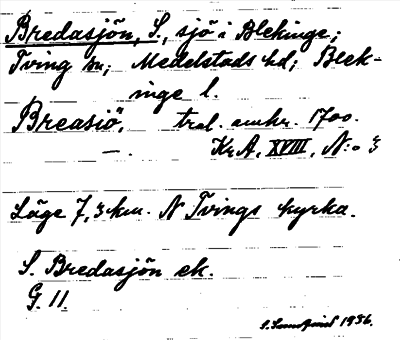 Bredasjön, S., sjö i Blekinge;
Tving sn; Medelstads hd; Blek-
inge l.
Breasiö, tral. omkr. 1700.
KrA, XVIII, N:o 3
Läge 7,3 km. N Tvings kyrka.
S. Bredasjön ek.
G. 11.
1936.